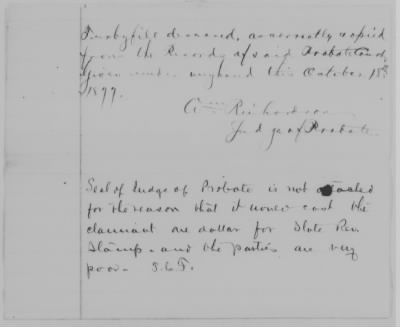 deceased, correctly copied
from the Records of said Probate Court
Given under my hand this October 18th
1899.
Richardson
Judge of Probate
Seal of Judge of Probate is not attached
for the reason that it would cost the
claimant one dollar for State Rev.
Stamp - and the parties are very
poor -